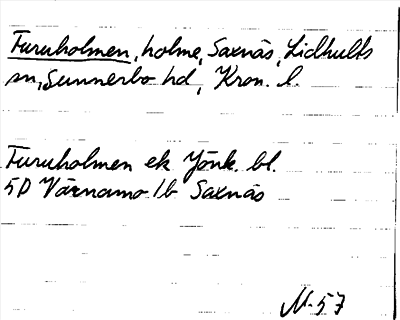 Furuholmen, holme, Saxnäs, Lidhults
sn, Sunnerbo hd, Kron. l.
Furuholmen ek Jönk. bl.
5D Värnamo 1b Saxnäs
N-57